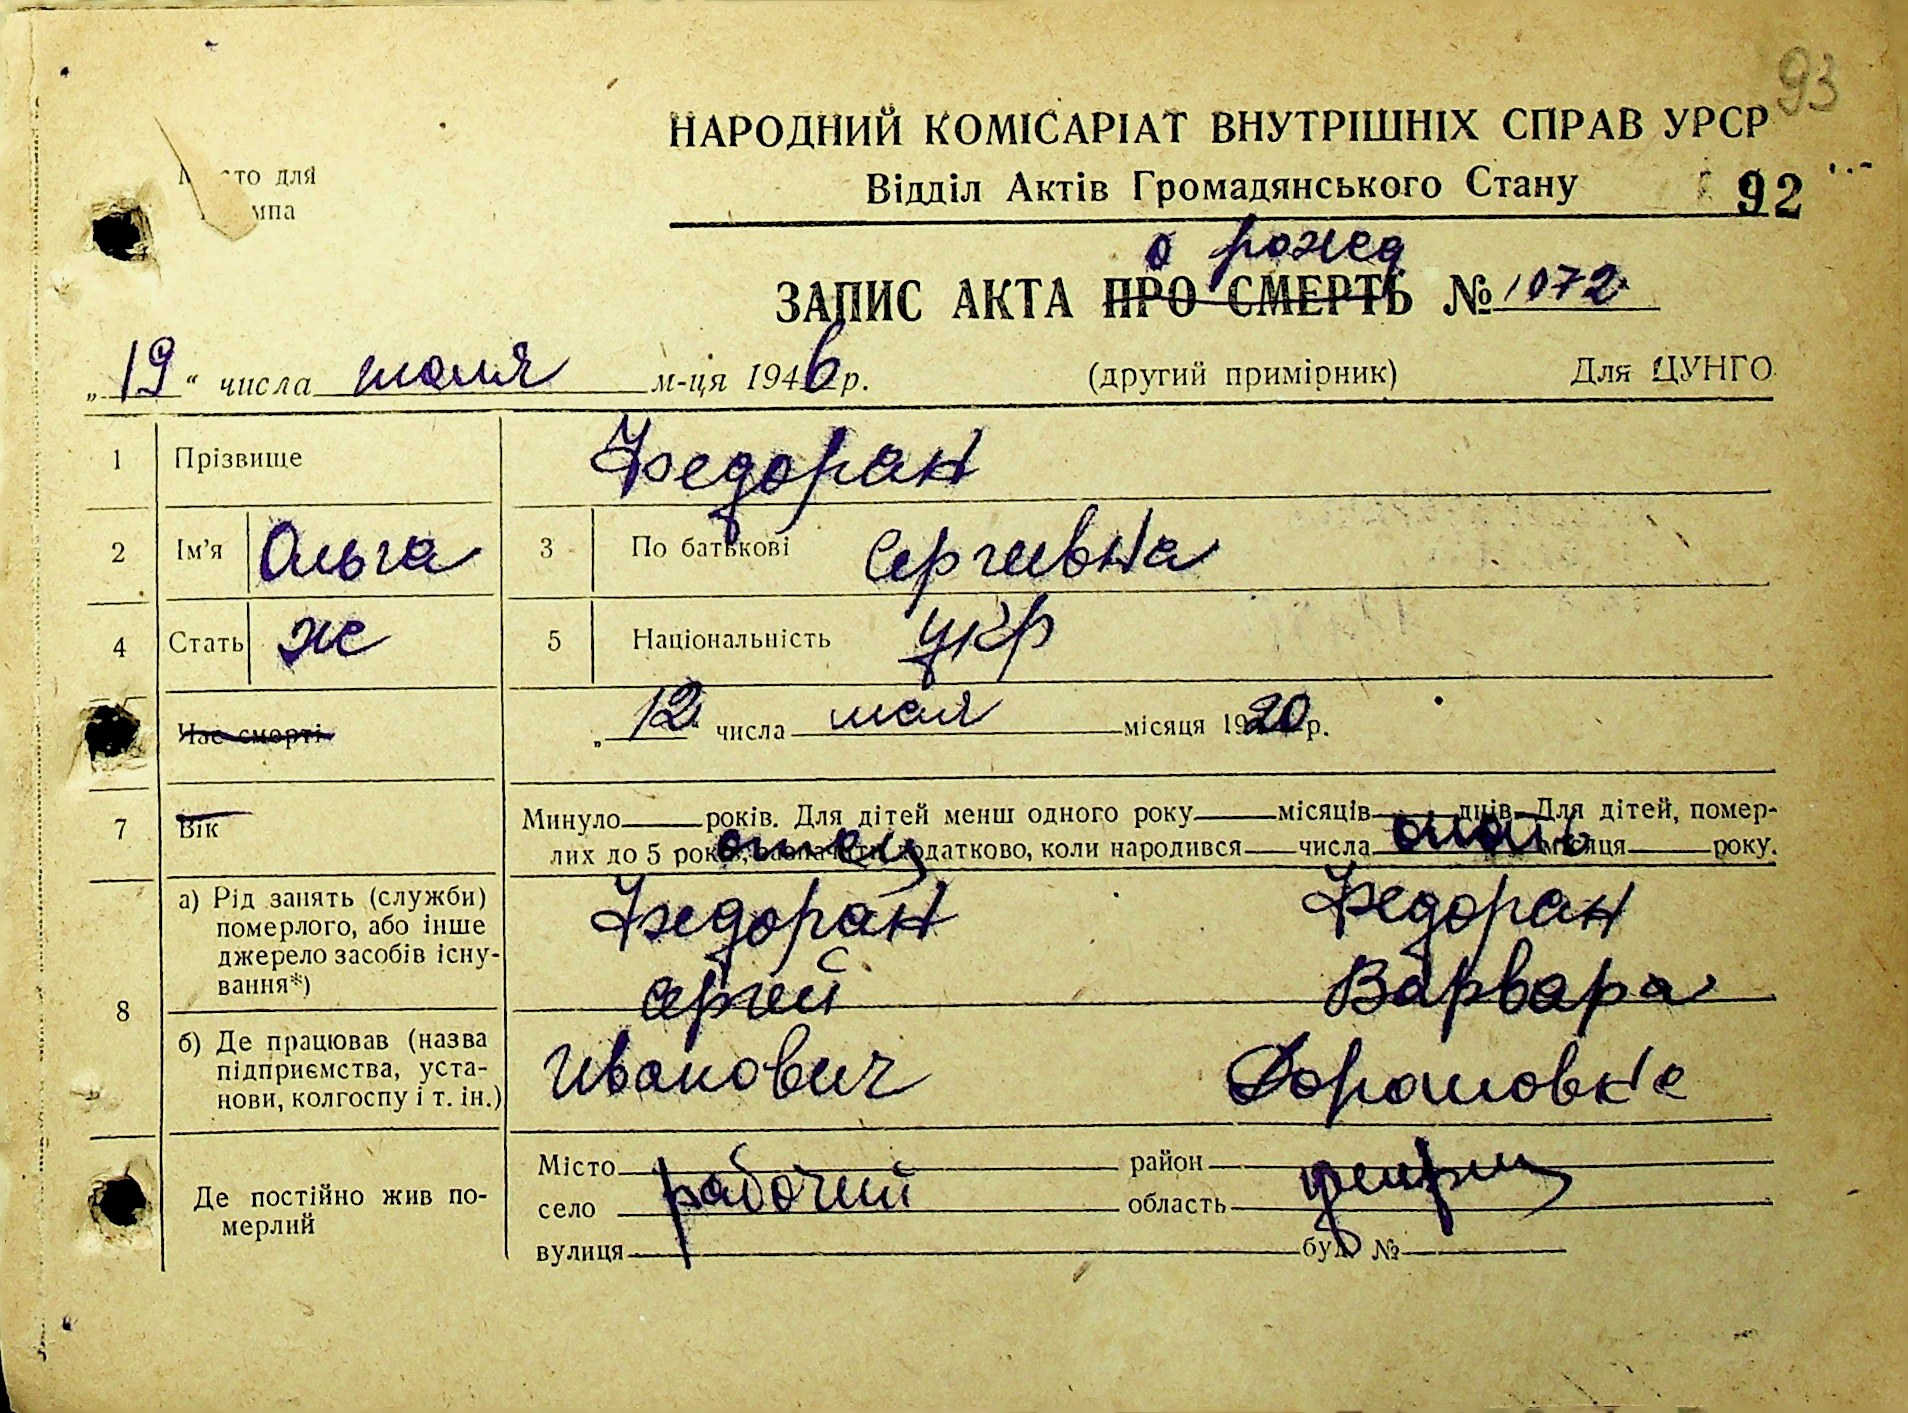 93
НАРОДНИЙ КОМІСАРІАТ ВНУТРІШНІХ СПРАВ УРСР
Відділ Актів Громадянського Стану
92
то для
мпа
о рожед
ЗАПИС АКТА ПРО СМЕРТЬ № 1072
„19“ числа июля м-ця 1946 р. (другий примірник) Для ЦУНГО
1 Прізвище Федоран
2 Ім'я Ольга 3 По батькові Сергеивна
4 Стать ж 5 Національність укр
Час смерті „12“ числа мая місяця 1920 р.
7 Вік Минуло року. Для дітей менш одного року місяців днів. Для дітей, помер-
лих до 5 років, зазначити додатково, коли народився числа місяця року.
отец мать
8 а) Рід занять (служби) померлого, або інше джерело засобів існу-вання*)
Федоран Федоран
Сергей Варвара
б) Де працював (назва підприємства, уста-нови, колгоспу і т. ін.)
Иванович
Де постійно жив по-мерлий
Місто район
село рабочий область
вулиця буд. №